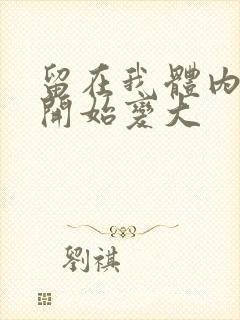 留在我體內
開始變大
劉祺